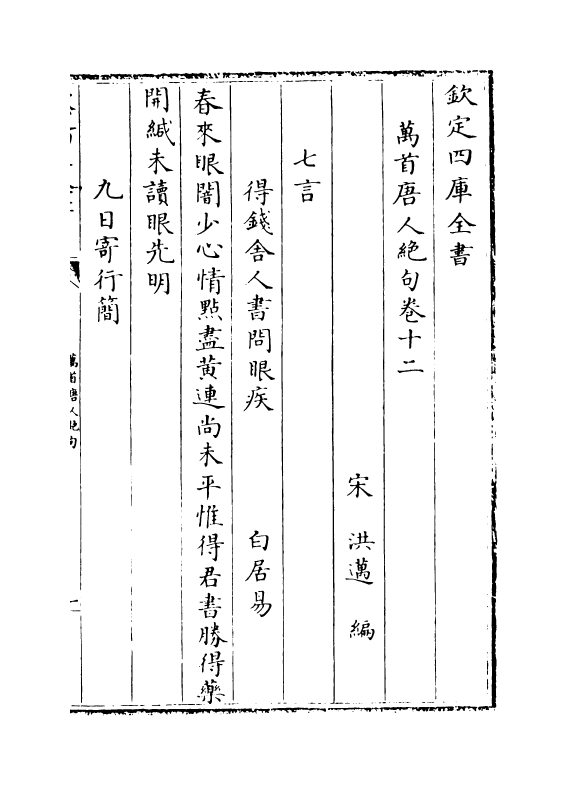 欽定四庫全書
萬首唐人絶句卷十二
宋 洪邁 編
七言
得錢舍人書問眼疾 白居易
春來眼闇少心情點盡黄連尚未平惟得君書勝得藥
開緘未讀眼先明
九日寄行簡
萬首唐人絶句